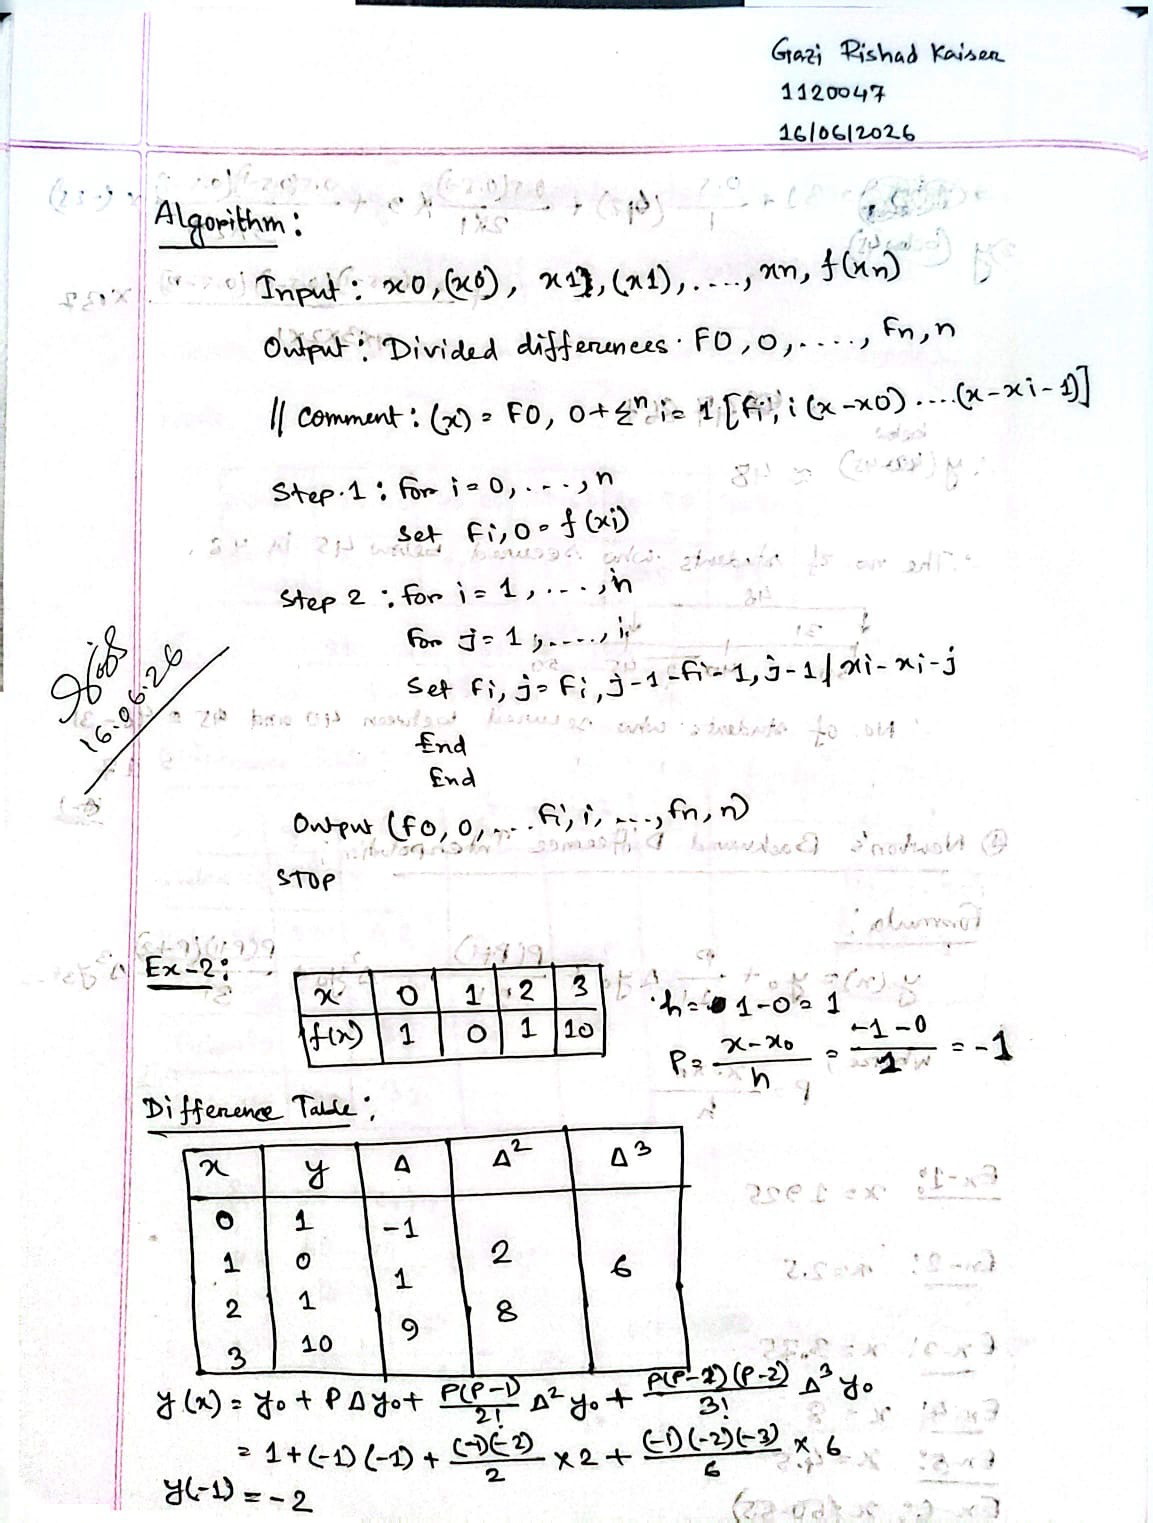 Gazi Rishad Kaiser
1120047
16/06/2026
Algorithm:
Input: x0,(x0), x1,(x1),....,xn, f(xn)
Output: Divided differences. F0,0,....,Fn,n
// Comment: (x) = F0, 0+Σⁿ i= 1 [fi, i (x-x0)....(x-xi-1)]
Step.1: for i=0,....,n
Set Fi,0 = f(xi)
Step 2: for i= 1,....,n
for j=1,....,i
Set Fi,j= Fi,j-1-fi-1,j-1/xi-xi-j
End
End
Output (F0,0,....fi,i,....,fn,n)
STOP
16.06.26
Ex-2:
x 0 1 2 3
f(x) 1 0 1 10
h= 1-0= 1
P= x-x0/h = -1-0/1 = -1
Difference Table:
x y Δ Δ² Δ³
0 1 -1
1 0 2
1 6
2 1 8
9
3 10
y(x) = y0 + PΔy0+ P(P-1)/2! Δ²y0 + P(P-1)(P-2)/3! Δ³y0
= 1+(-1)(-1)+ (-1)(-2)/2 ×2+ (-1)(-2)(-3)/6 ×6
y(-1) = -2